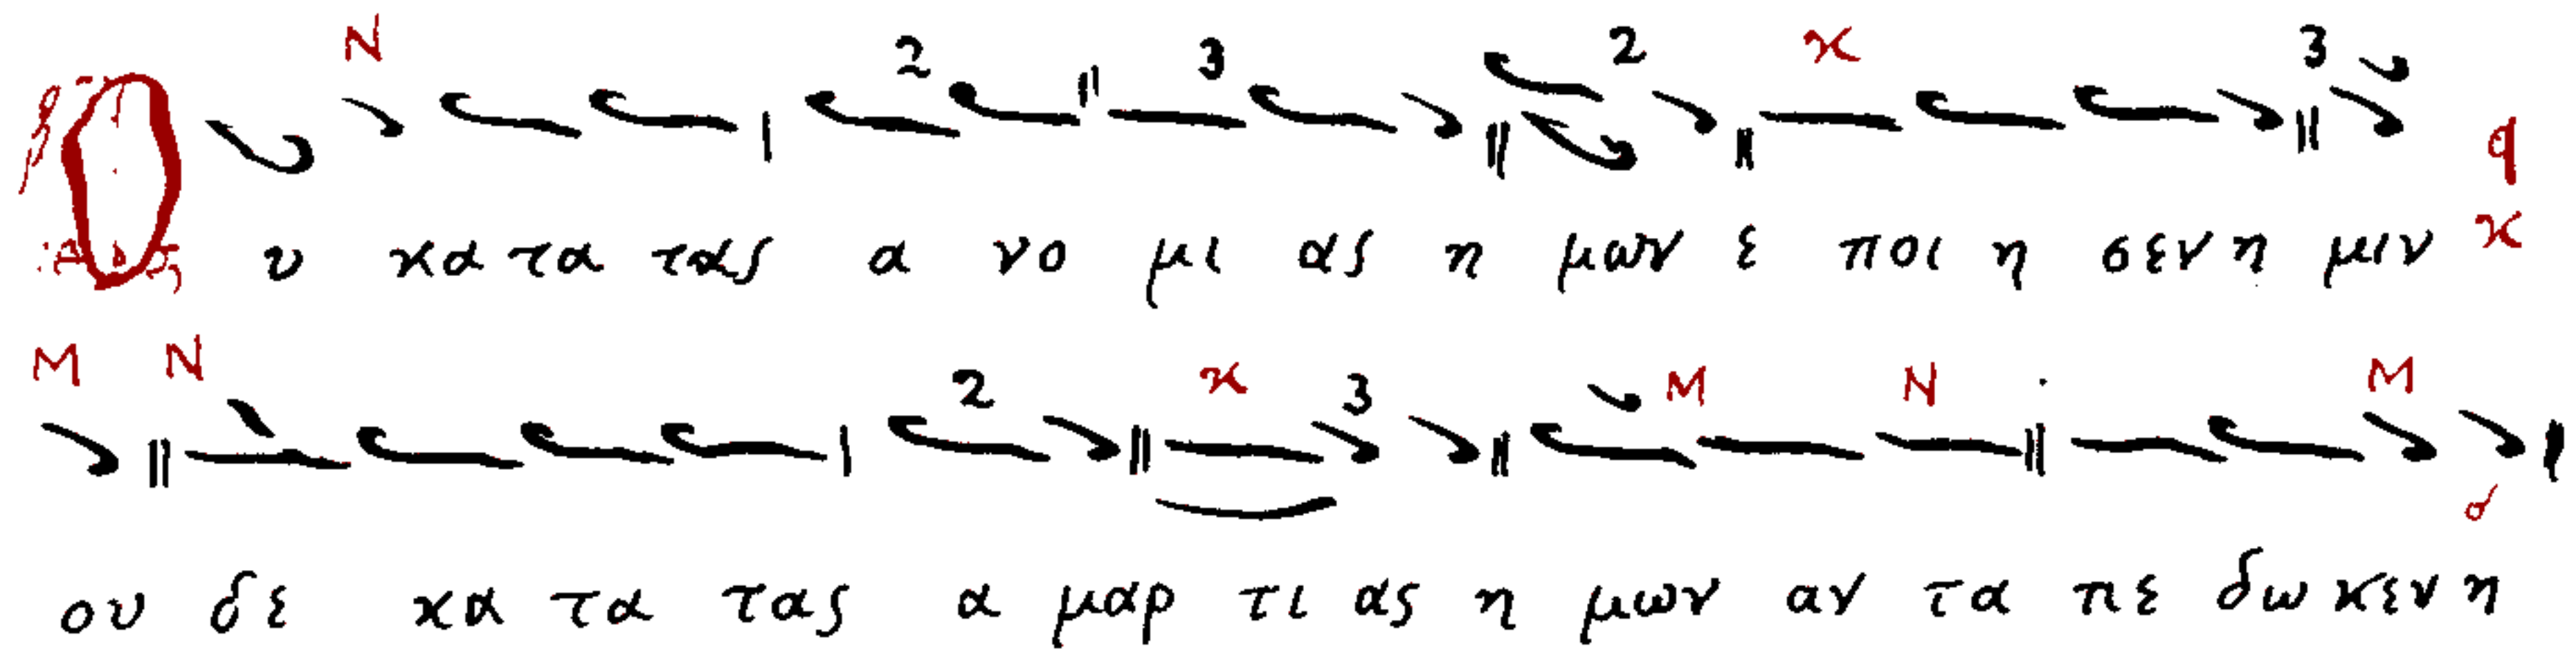 N 2 3 2 κ 3
Ο υ κα τα τας α νο μι ας η μων ε ποι η σεν η μιν q κ
M N 2 κ 3 M N M
ου δε κα τα τας α μαρ τι ας η μων αν τα πε δω κεν η